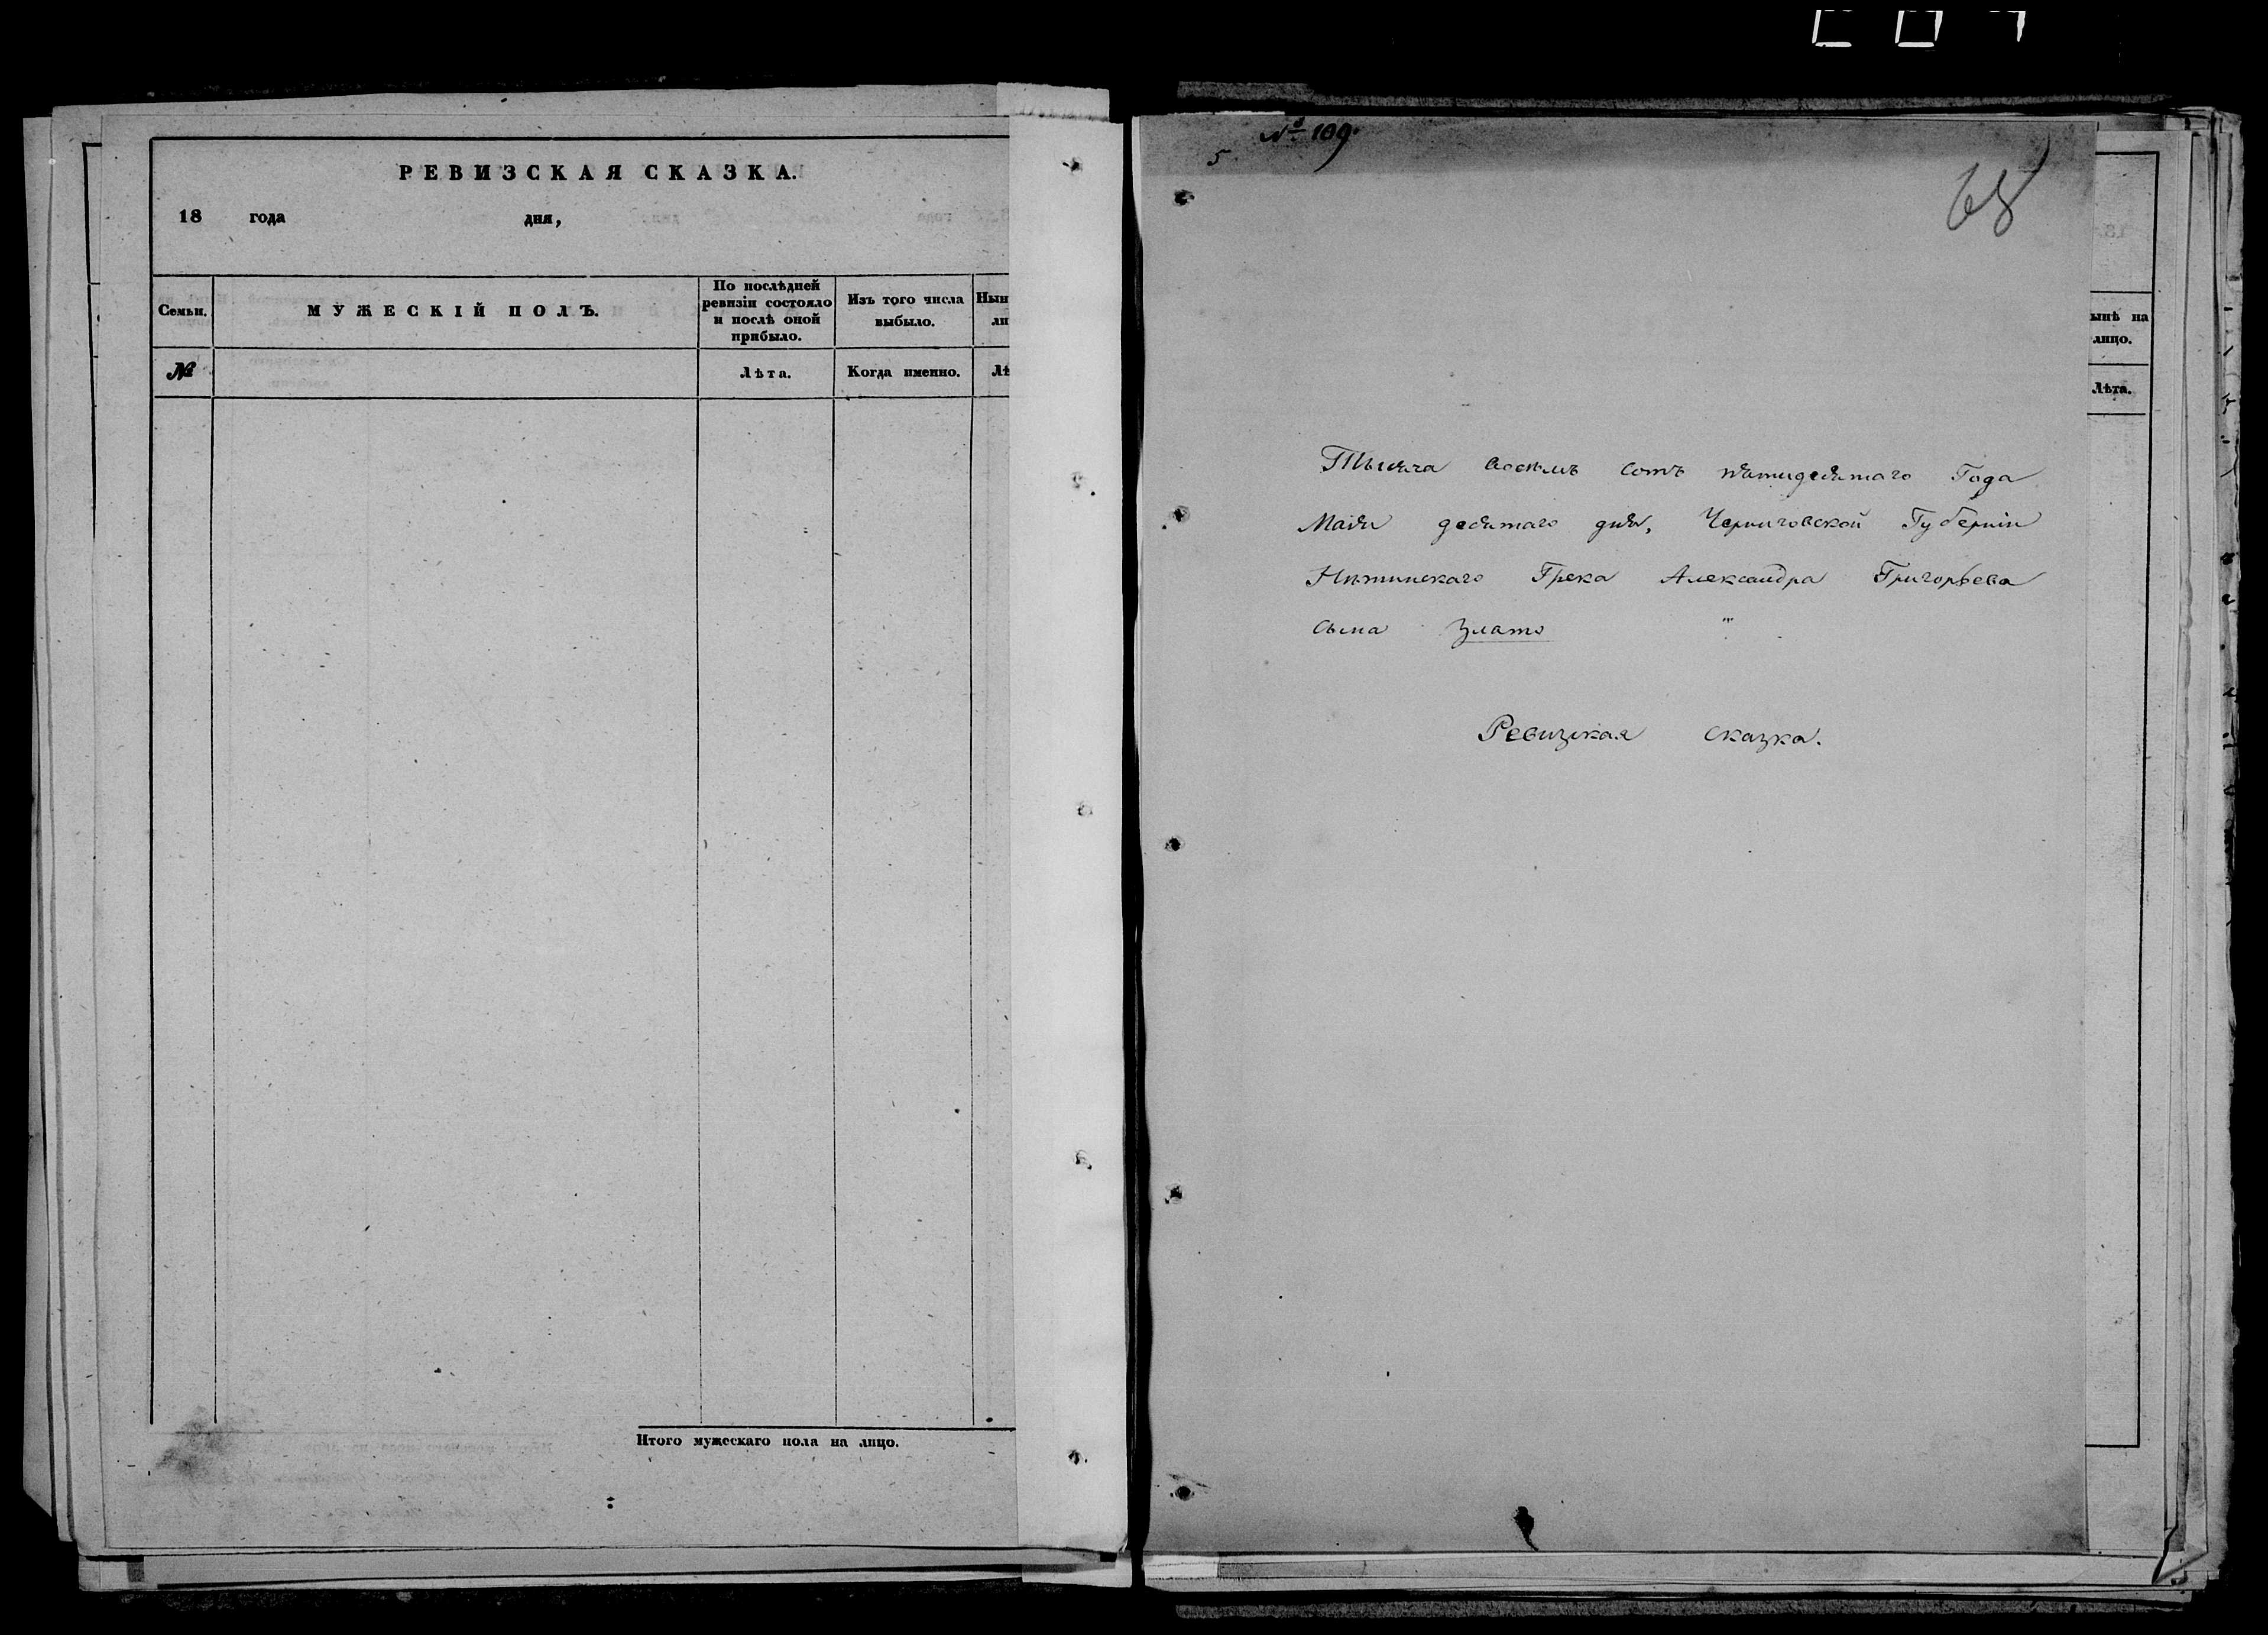 РЕВИЗСКАЯ СКАЗКА.
18 года дня,
Семьи.
МУЖЕСКІЙ ПОЛЪ.
По послѣдней
ревизіи состояло
и послѣ оной
прибыло.
Изъ того числа
выбыло.
Нын
ли
№
Лѣта.
Когда именно.
Лѣ
Итого мужескаго пола на лицо.
№ 109.
5
68
Тысяча восемь сотъ пятидесятаго Года
Маія десятаго дня, Черниговской Губерніи
Нѣжинскаго Грека Александра Григорьева
сына Злато "'
Ревизкая сказка.
ынѣ на
лицо.
Лѣта.